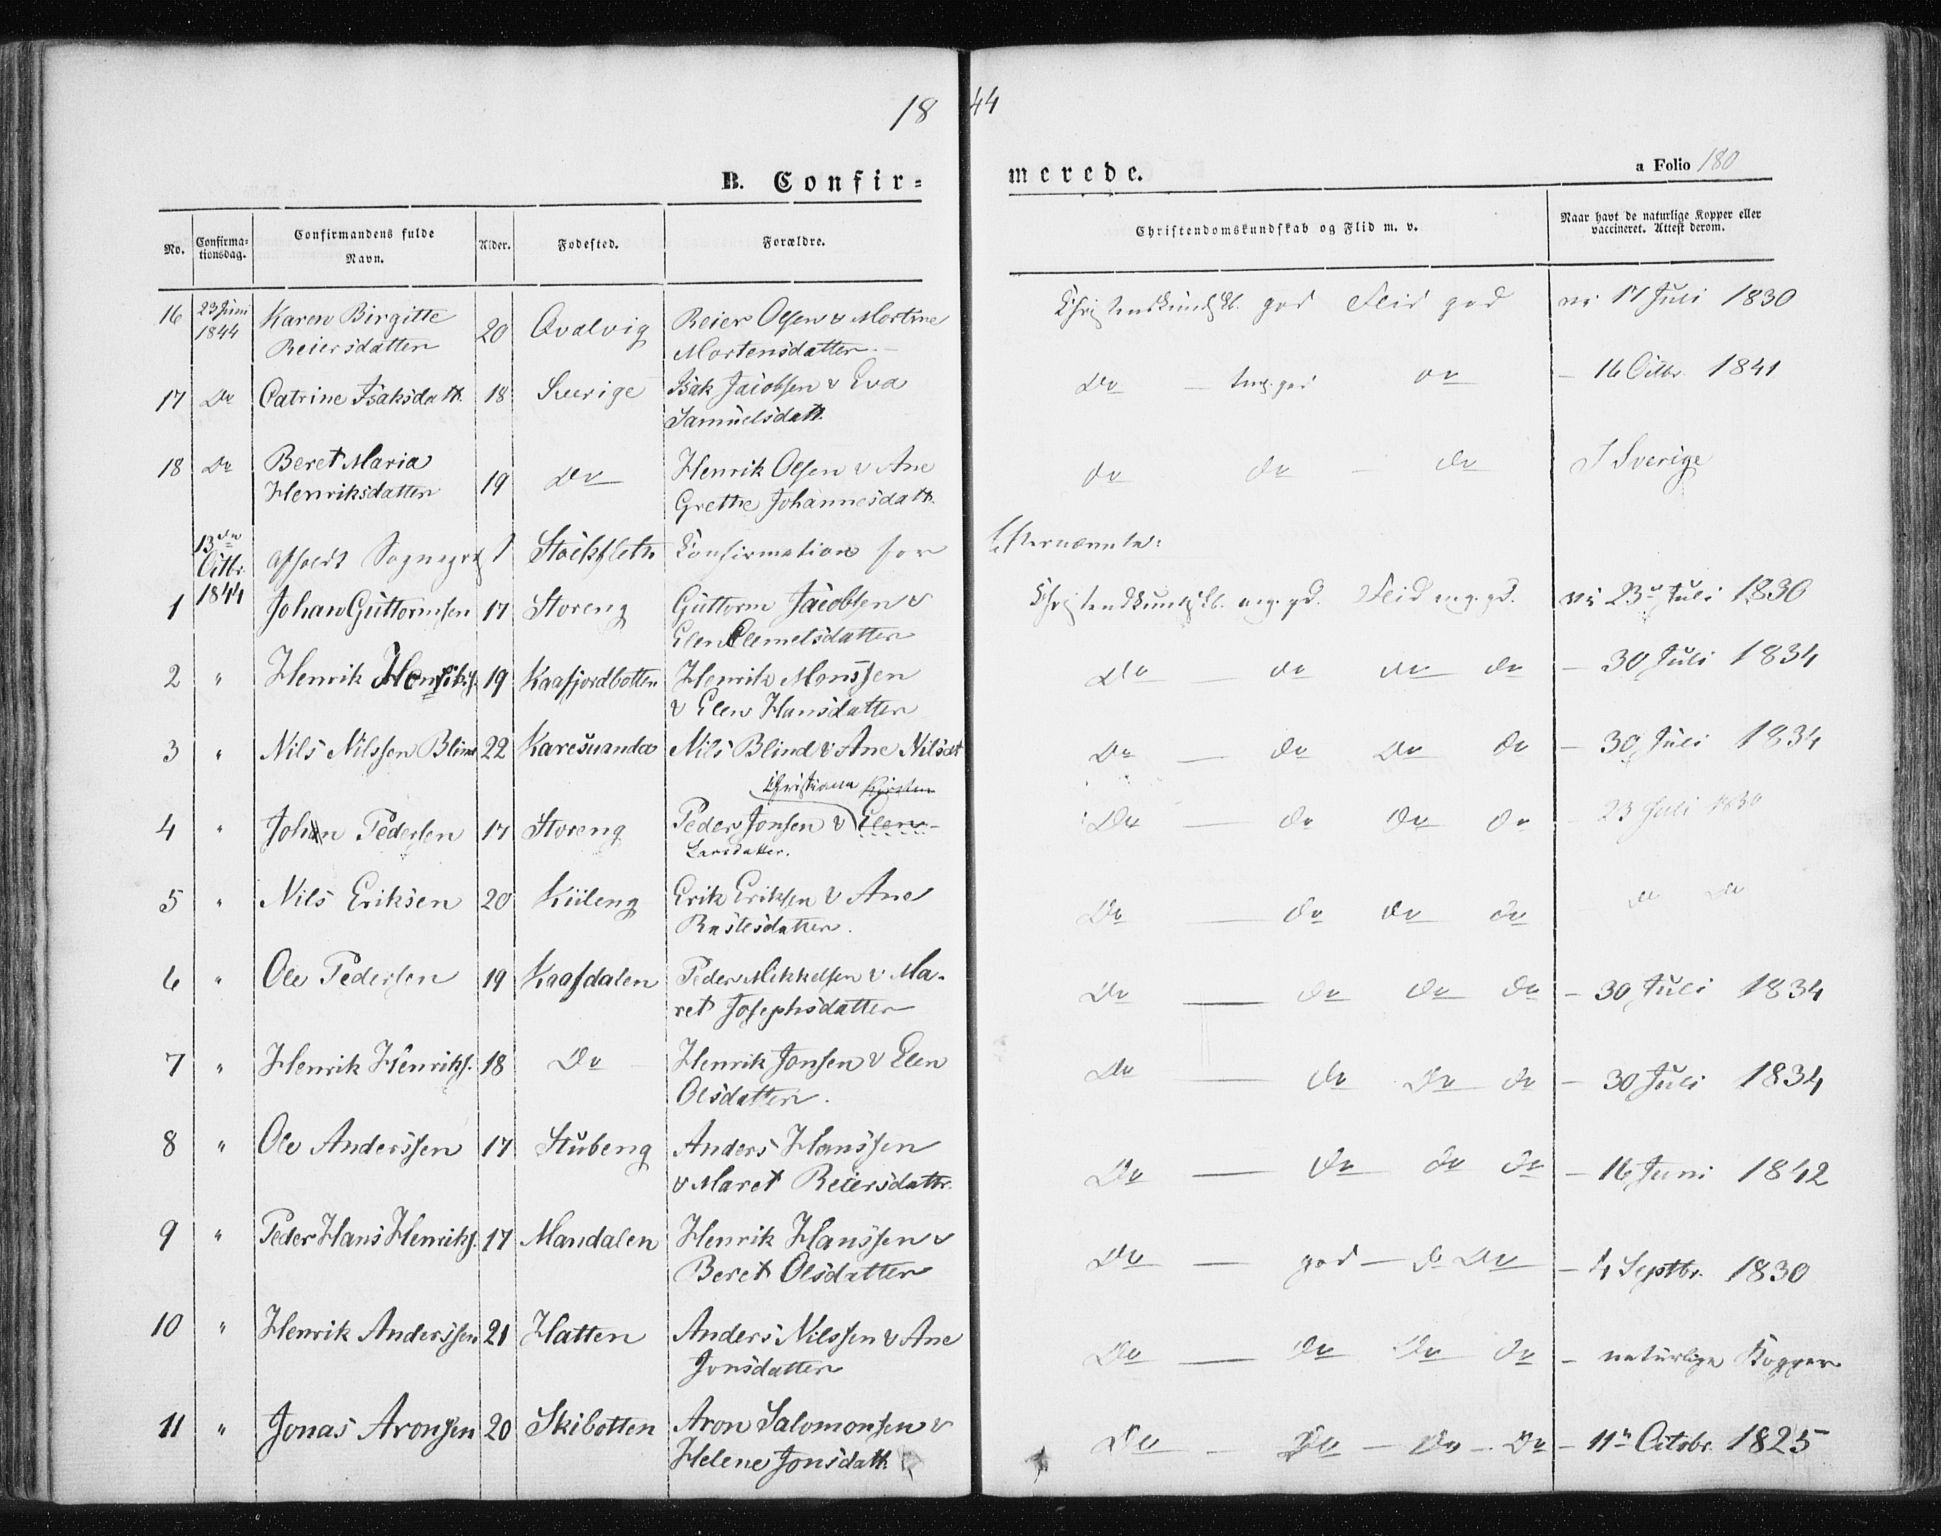 1844
B. Confirmerede.
a Folio 180
No. Confirmationsdag. Confirmandens fulde Navn. Alder. Fodested. Forældre. Christendomskundskab og Flid m. v. Naar havt de naturlige Kopper eller vaccineret. Attest derom.
16 23 Juni 1844 Karen Birgitte 20 Qvalvig Reier Olsen & Mortine Christendskundskb. god Flid god 17 Juli 1830
Reiersdatter Mortensdatter.
17 Do Catrine Isaksdatt. 18 Sverige Isak Jacobsen & Eva Do — mg. god do — 16 Octbr. 1841
Samuelsdatt.
18 Do Beret Maria 19 Do Henrik Olsen & Ane do do — do I Sverige
Henriksdatter Grethe Johannesdatt.
13de Octbr. 1844 Sognepr Stockfleth Confirmation for Efternævnte:
1 Johan Guttormsen 17 Storeng Guttorm Jacobsen & Christendskundskb. mg. gd. Flid mg. gd. 23 Juli 1830
Elen Clemetsdatter
2 " Henrik Henriks. 19 Kaafjordbotten Henrik Monssen Do — do do do — 30 Juli 1834
& Elen Hansdatter
3 " Nils Nilssen Blind 22 Karesuando Nils Blind & Ane Nilsdt Do — do Do do — 30 Juli 1834
Christiana Kirsten
4 " Johan Pedersen 17 Storeng Peder Jonsen & Elen Do — do do do — 23 Juli 1830
Larsdatter.
5 " Nils Eriksen 20 Kiileng Erik Eriksen & Ane Do — do do do do do
Rastesdatter.
6 " Ole Pedersen 19 Kaafdalen Peder Mikkelsen & Ma- Do — do do do — 30 Juli 1834
ret Josephsdatter
7 " Henrik Henriks. 18 Do Henrik Jonsen & Elen Do — do do do — 30 Juli 1834
Olsdatter.
8 " Ole Anderssen 17 Stubeng Anders Hanssen Do — do do do — 16 Juni 1842
& Maret Reiersdattr.
9 " Peder Hans Henriks. 17 Mandalen Henrik Hanssen & Do — god — do Do — 4 Septbr. 1830
Beret Olsdatter
10 " Henrik Anderssen 21 Hatten Anders Nilssen & Ane Do — do do do — naturlige Kopper
Jonsdatter
11 " Jonas Aronsen 20 Skibotten Aron Salomonsen & Do — Do — Do — Do — 11 Octobr. 1825
Helene Jonsdatt.